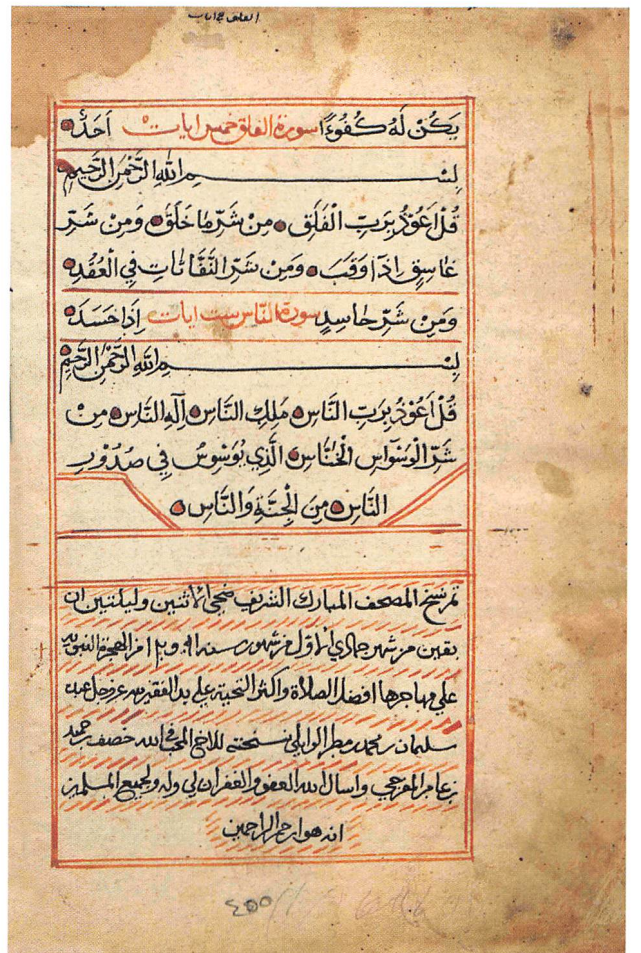 يَكُنْ لَهُ كُفُوًا سورة الفلق خمس ايات اَحَدٌ
بِسْمِ اللهِ الرَّحْمٰنِ الرَّحِيمِ
قُلْ اَعُوذُ بِرَبِّ الْفَلَقِ مِنْ شَرِّ مَا خَلَقَ وَمِنْ شَرِّ
غَاسِقٍ اِذَا وَقَبَ وَمِنْ شَرِّ النَّفَّاثَاتِ فِي الْعُقَدِ
وَمِنْ شَرِّ حَاسِدٍ سورة الناس ست ايات اِذَا حَسَدَ
بِسْمِ اللهِ الرَّحْمٰنِ الرَّحِيمِ
قُلْ اَعُوذُ بِرَبِّ النَّاسِ مَلِكِ النَّاسِ اِلٰهِ النَّاسِ مِنْ
شَرِّ الْوَسْوَاسِ الْخَنَّاسِ الَّذِي يُوَسْوِسُ فِي صُدُوْرِ
النَّاسِ مِنَ الْجِنَّةِ وَالنَّاسِ
تم نسخ المصحف المبارك الشريف ضحى الاثنين وليلتين ان
بقين من شهر جمادي الاول من شهور سنة من الهجرة النبوية
على مهاجرها افضل الصلاة واكثر التحية على يد الفقير لله عز وجل
سليمان بن محمد بن مطر الوايلي نسخته للاخ المحب في الله خصف بن حميد
بن عامر واسال الله العفو والغفران لي وله ولجميع المسلمين
انه هو ارحم الراحمين